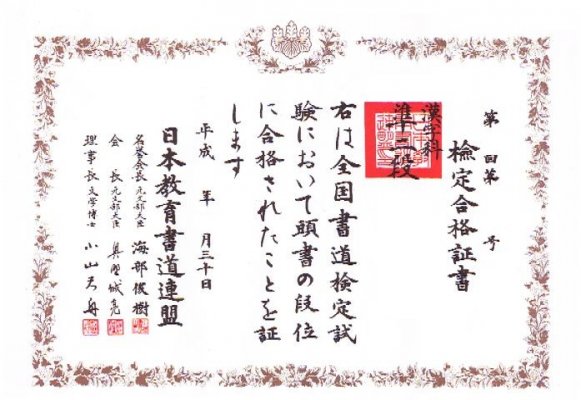 第 回第 号
検定合格証書
漢字科
準二段
右は全国書道検定試
験において頭書の段位
に合格されたことを証
します
平成 年 月三十日
日本教育書道連盟
名誉会長 元文部大臣 海部俊樹
会長 元文部大臣 奥野誠亮
理事長 文学博士 小山天舟